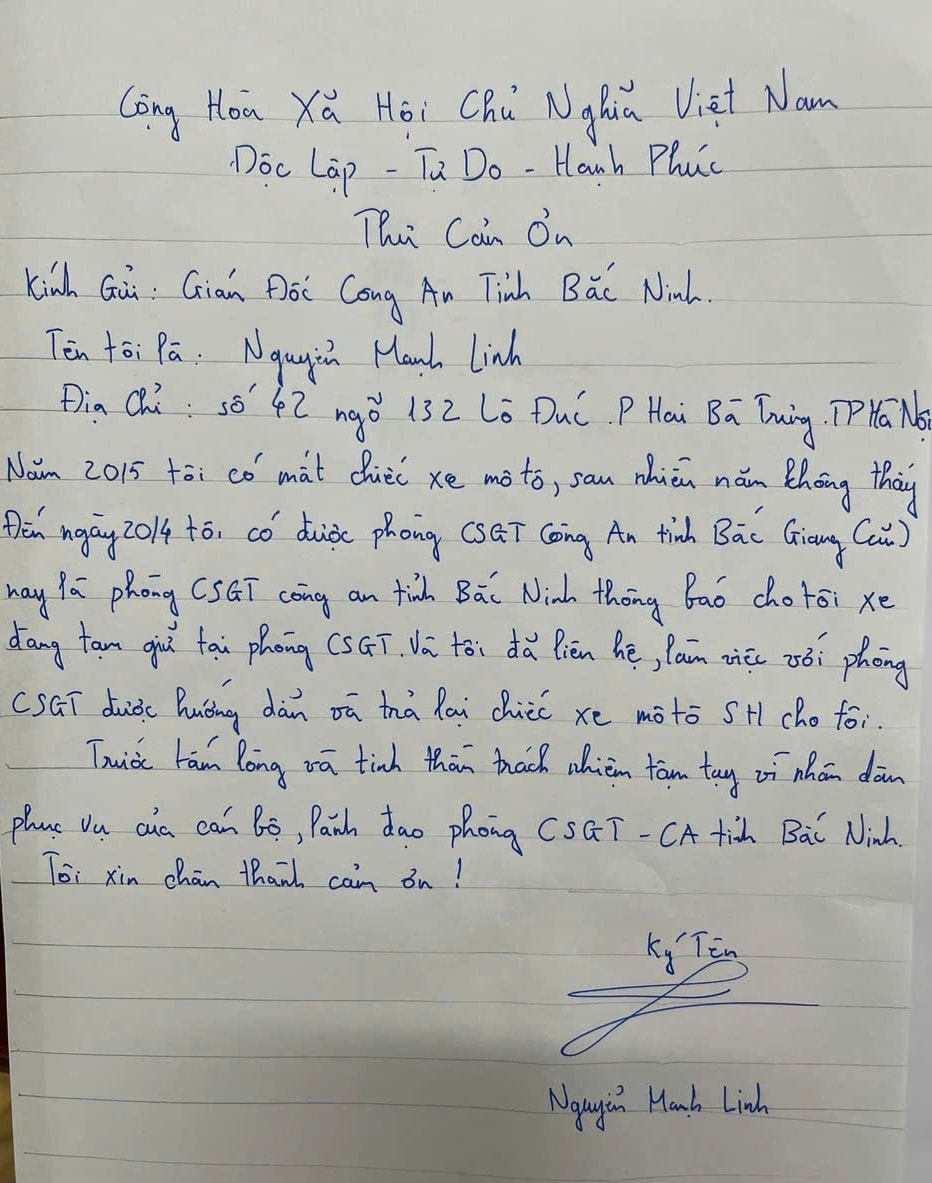 Cộng Hòa Xã Hội Chủ Nghĩa Việt Nam
Độc Lập - Tự Do - Hạnh Phúc
Thư Cảm Ơn
Kính Gửi : Giám Đốc Công An Tỉnh Bắc Ninh.
Tên tôi là : Nguyễn Mạnh Linh
Địa Chỉ : số 42 ngõ 132 Lò Đúc . P Hai Bà Trưng . TP Hà Nội
Năm 2015 tôi có mất chiếc xe mô tô, sau nhiều năm không thấy
Đến ngày 20/4 tôi có được phòng CSGT Công An tỉnh Bắc Giang (cũ)
nay là phòng CSGT công an tỉnh Bắc Ninh thông báo cho tôi xe
đang tạm giữ tại phòng CSGT. Và tôi đã liên hệ, làm việc với phòng
CSGT được hướng dẫn và trả lại chiếc xe mô tô SH cho tôi.
Trước tấm lòng và tinh thần trách nhiệm tậm tụy vì nhân dân
phục vụ của cán bộ, lãnh đạo phòng CSGT - CA tỉnh Bắc Ninh.
Tôi xin chân thành cảm ơn !
Ký Tên
Nguyễn Mạnh Linh